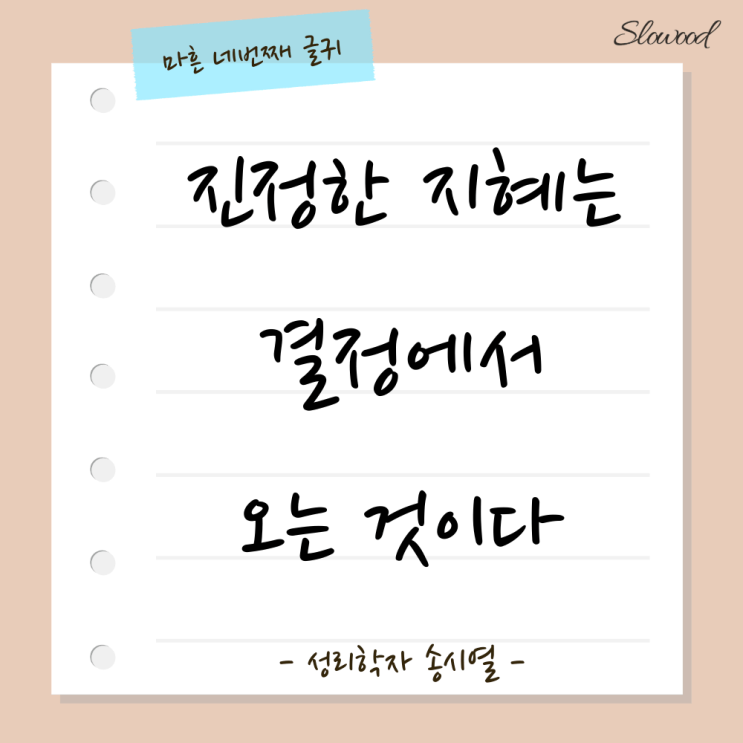 마흔 네번째 글귀
Slowood
진정한 지혜는
결정에서
오는 것이다
- 성리학자 송시열 -